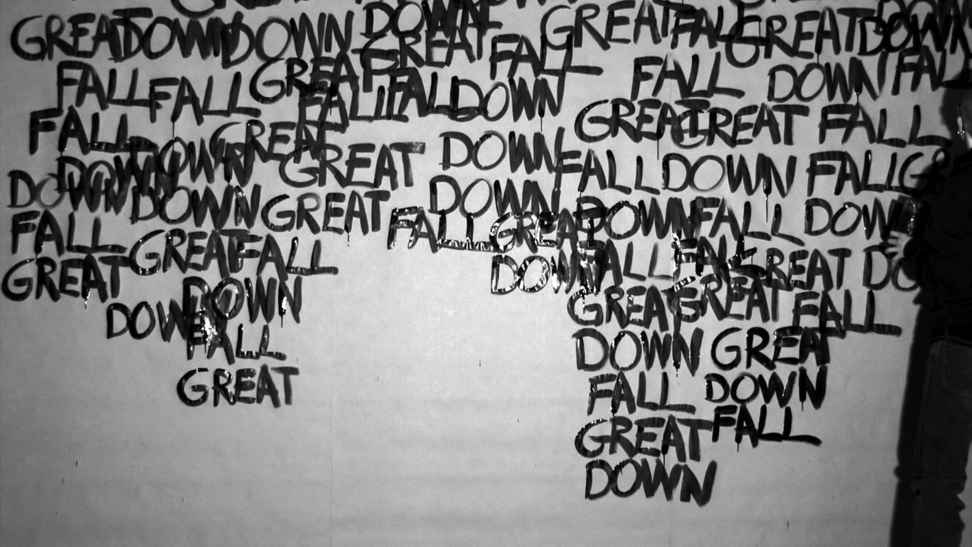 GREAT DOWN DOWN DOWN GREAT FALL GREAT DOWN
GREAT FALL
FALL FALL GREAT FALL DOWN FALL DOWN FALL
FALL GREAT FALL GREAT GREAT FALL
DOWN DOWN GREAT DOWN FALL DOWN FALL
DOWN DOWN GREAT DOWN DOWN FALL DOWN
FALL GREAT FALL FALL GREAT FALL FALL GREAT DO
GREAT DOWN DOWN GREAT GREAT FALL
DOWN FALL DOWN GREAT
GREAT FALL DOWN
GREAT FALL
DOWN